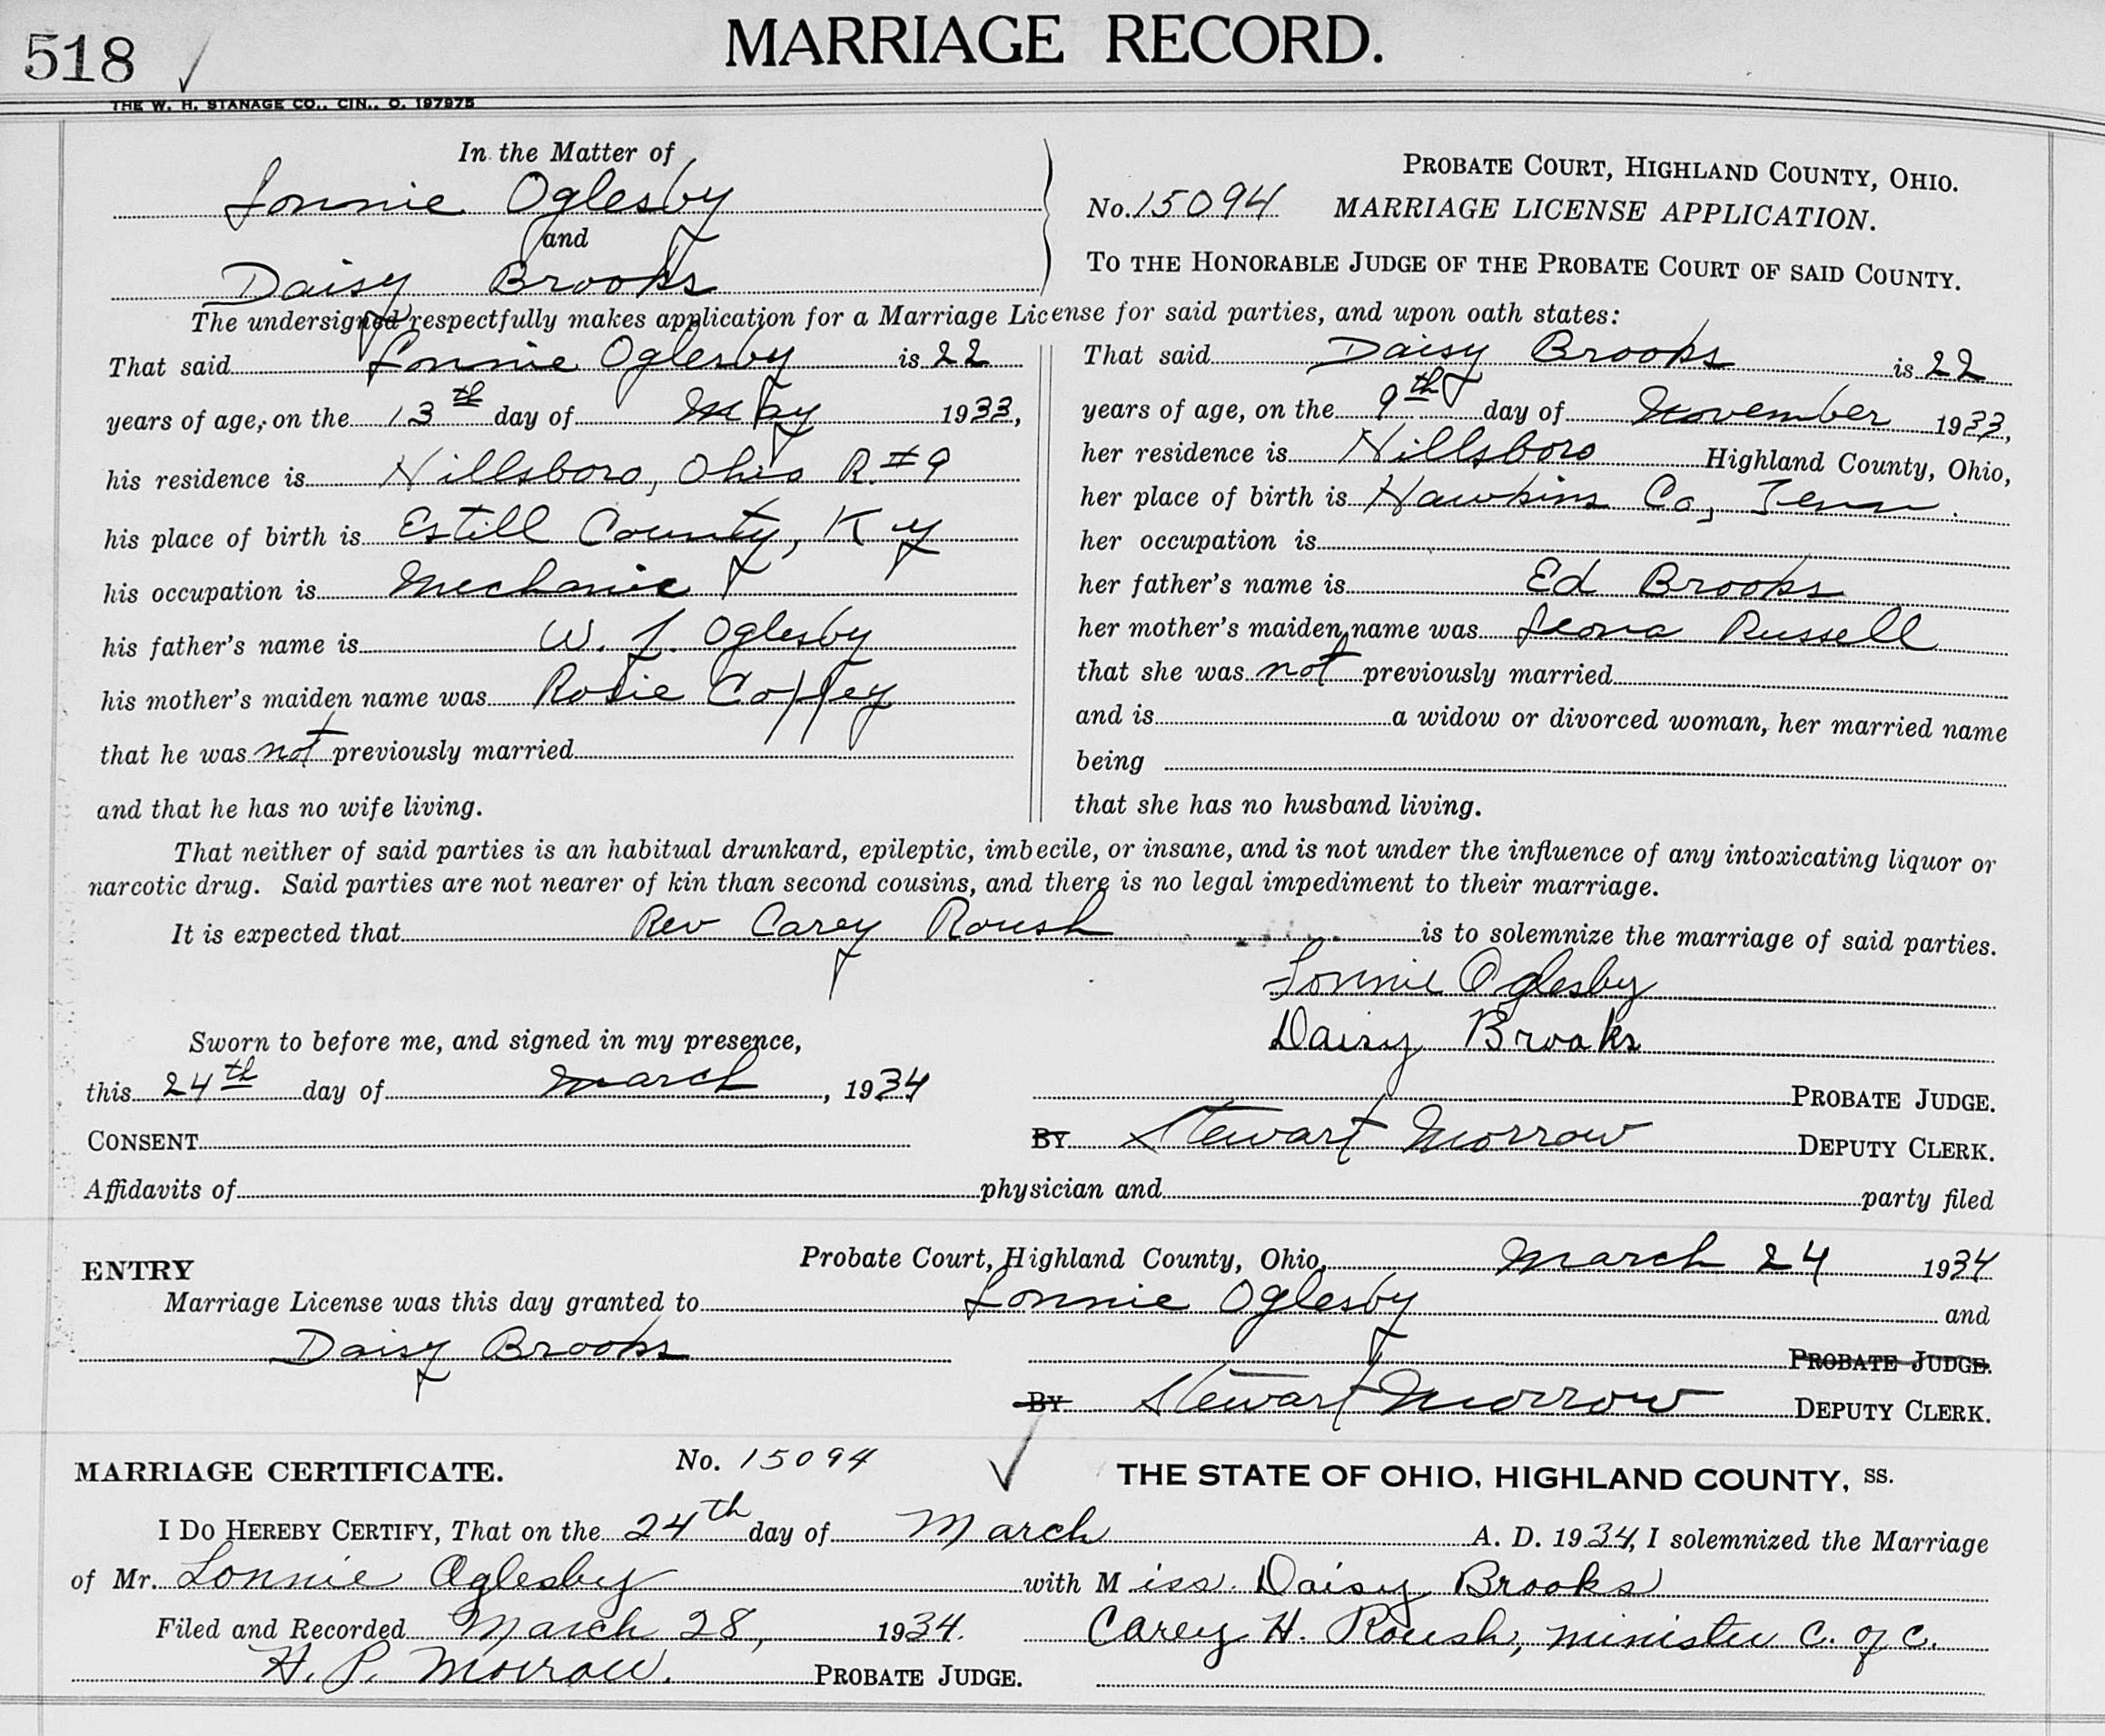 518 ✓
MARRIAGE RECORD.
THE W. H. STANAGE CO., CIN., O. 197975
In the Matter of
Lonnie Oglesby
and
Daisy Brooks
PROBATE COURT, HIGHLAND COUNTY, OHIO.
No. 15094 MARRIAGE LICENSE APPLICATION.
TO THE HONORABLE JUDGE OF THE PROBATE COURT OF SAID COUNTY.
The undersigned respectfully makes application for a Marriage License for said parties, and upon oath states:
That said Lonnie Oglesby is 22
years of age, on the 13th day of May 1933,
his residence is Hillsboro, Ohio R. #9
his place of birth is Estill County, Ky
his occupation is Mechanic
his father's name is W. L. Oglesby
his mother's maiden name was Rosie Coffey
that he was not previously married
and that he has no wife living.
That said Daisy Brooks is 22
years of age, on the 9th day of November 1933,
her residence is Hillsboro Highland County, Ohio,
her place of birth is Hawkins Co, Tenn.
her occupation is
her father's name is Ed Brooks
her mother's maiden name was Leona Russell
that she was not previously married
and is a widow or divorced woman, her married name
being
that she has no husband living.
That neither of said parties is an habitual drunkard, epileptic, imbecile, or insane, and is not under the influence of any intoxicating liquor or
narcotic drug. Said parties are not nearer of kin than second cousins, and there is no legal impediment to their marriage.
It is expected that Rev Carey Roush is to solemnize the marriage of said parties.
Lonnie Oglesby
Daisy Brooks
Sworn to before me, and signed in my presence,
this 24th day of March, 1934
PROBATE JUDGE.
CONSENT
BY Stewart Morrow DEPUTY CLERK.
Affidavits of physician and party filed
ENTRY Probate Court, Highland County, Ohio, March 24 1934
Marriage License was this day granted to Lonnie Oglesby and
Daisy Brooks PROBATE JUDGE.
BY Stewart Morrow DEPUTY CLERK.
MARRIAGE CERTIFICATE. No. 15094 ✓ THE STATE OF OHIO, HIGHLAND COUNTY, SS.
I DO HEREBY CERTIFY, That on the 24th day of March A. D. 1934, I solemnized the Marriage
of Mr. Lonnie Oglesby with Miss Daisy Brooks
Filed and Recorded March 28, 1934. Carey H. Roush, minister C. of C.
H. P. Morrow. PROBATE JUDGE.